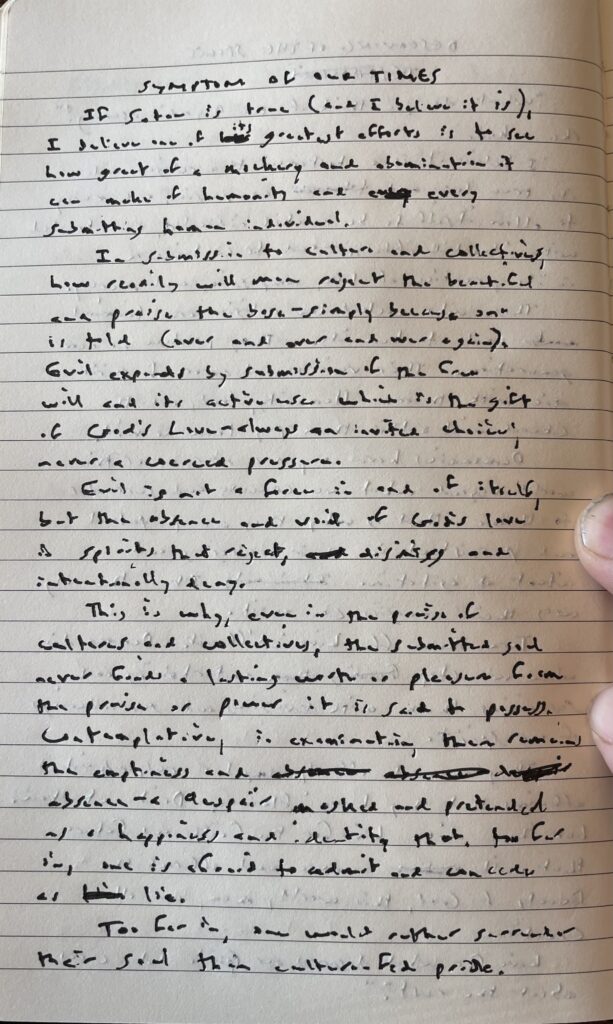 SYMPTOM OF OUR TIMES
If Satan is true (and I believe it is),
I believe one of its greatest efforts is to see
how great of a mockery and abomination it
can make of humanity and every
submitting human individual.
In submission to culture and collectives,
how readily will man reject the beautiful
and praise the base-simply because one
is told (over and over and over again).
Evil expands by submission of the free
will and its active use which is the gift
of God's Love-always an invited choice,
never a coerced pressure.
Evil is not a force in and of itself,
but the absence and void of God's love
is spirits that reject, disintegr and
intentionally deny.
This is why, even in the praise of
cultures and collectives, the submitted soul
never finds a lasting worth or pleasure from
the praise or power it is said to possess.
Contemplative, in examination, there remains
the emptiness and
absence-a despair masked and pretended
as a happiness and identity that, too far
in, one is afraid to admit and concede
as lie.
Too far in, one would rather surrender
their soul than culture-fed pride.